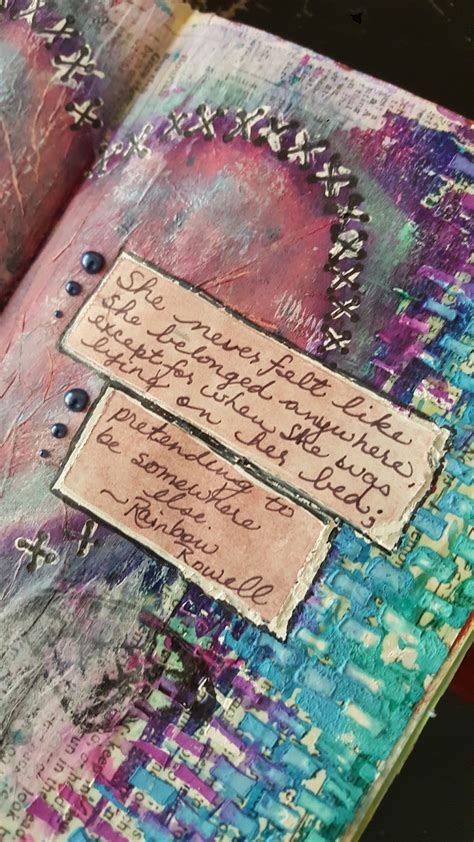 She never felt like
she belonged anywhere,
except for when she wqs
lying on her bed;
pretending to
be somewhere
else.
~Rainbow
Rowell